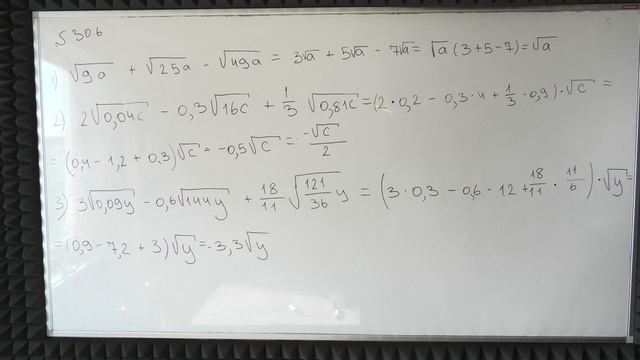 § 306
1) √9a + √25a - √49a = 3√a + 5√a - 7√a = √a (3+5-7) = √a
2) 2√0,04c - 0,3√16c + 1/3 √0,81c = (2·0,2 - 0,3·4 + 1/3·0,9)·√c =
= (0,4 - 1,2 + 0,3)√c = -0,5√c = -√c/2
3) 3√0,09y - 0,6√144y + 18/11 √121/36 y = (3·0,3 - 0,6·12 + 18/11·11/6)·√y =
= (0,9 - 7,2 + 3)√y = -3,3√y